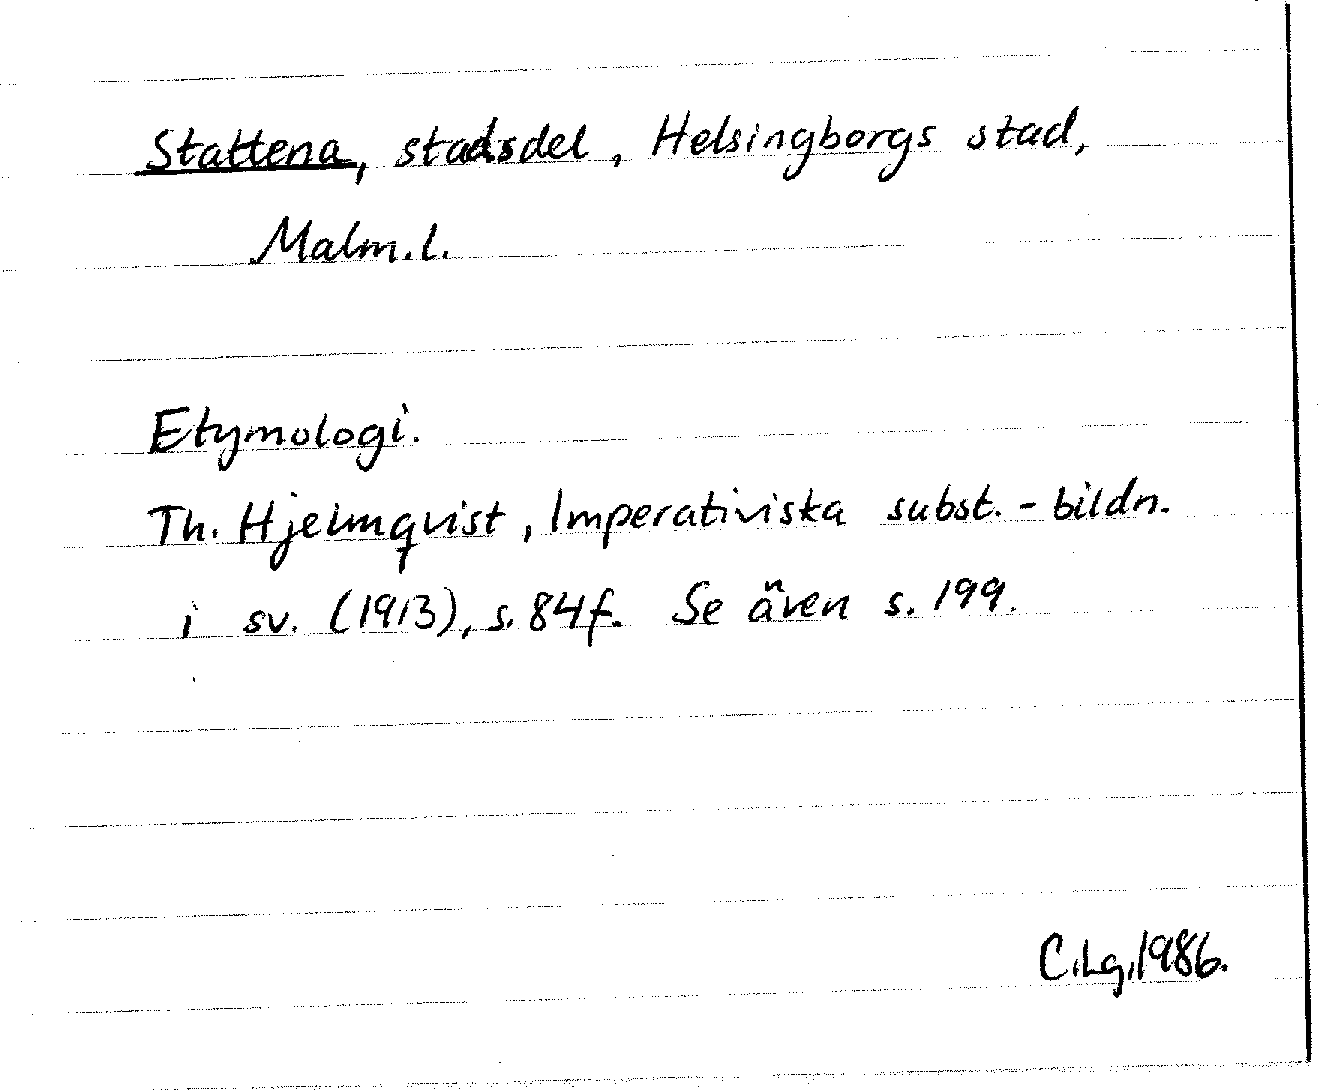 Stattena, stadsdel, Helsingborgs stad,
Malm.l.
Etymologi.
Th. Hjelmqvist, Imperativiska subst.-bildn.
i sv. (1913), s. 84f. Se även s. 199.
C.Lg. 1986.